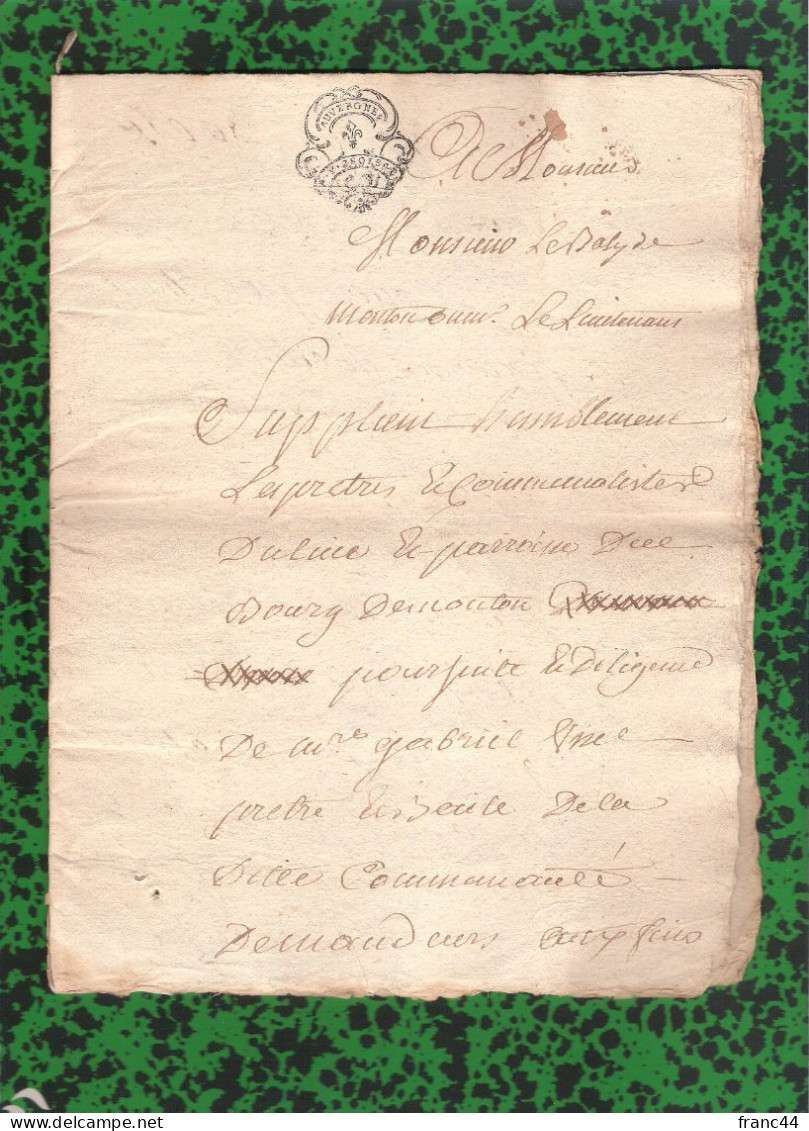 AUVERGNE
A Monsieur
Monsieur Le Baly de
monton ou mr. Le Lieutenant
Supplient humblement
Les pretres & Communalistes
Du lieu & parroisse Du
Bourg De monton
poursuite & Deligence
De mre gabriel
pretre & Beile De la
Ditte Communauté
Demandeurs aux fins
franc44